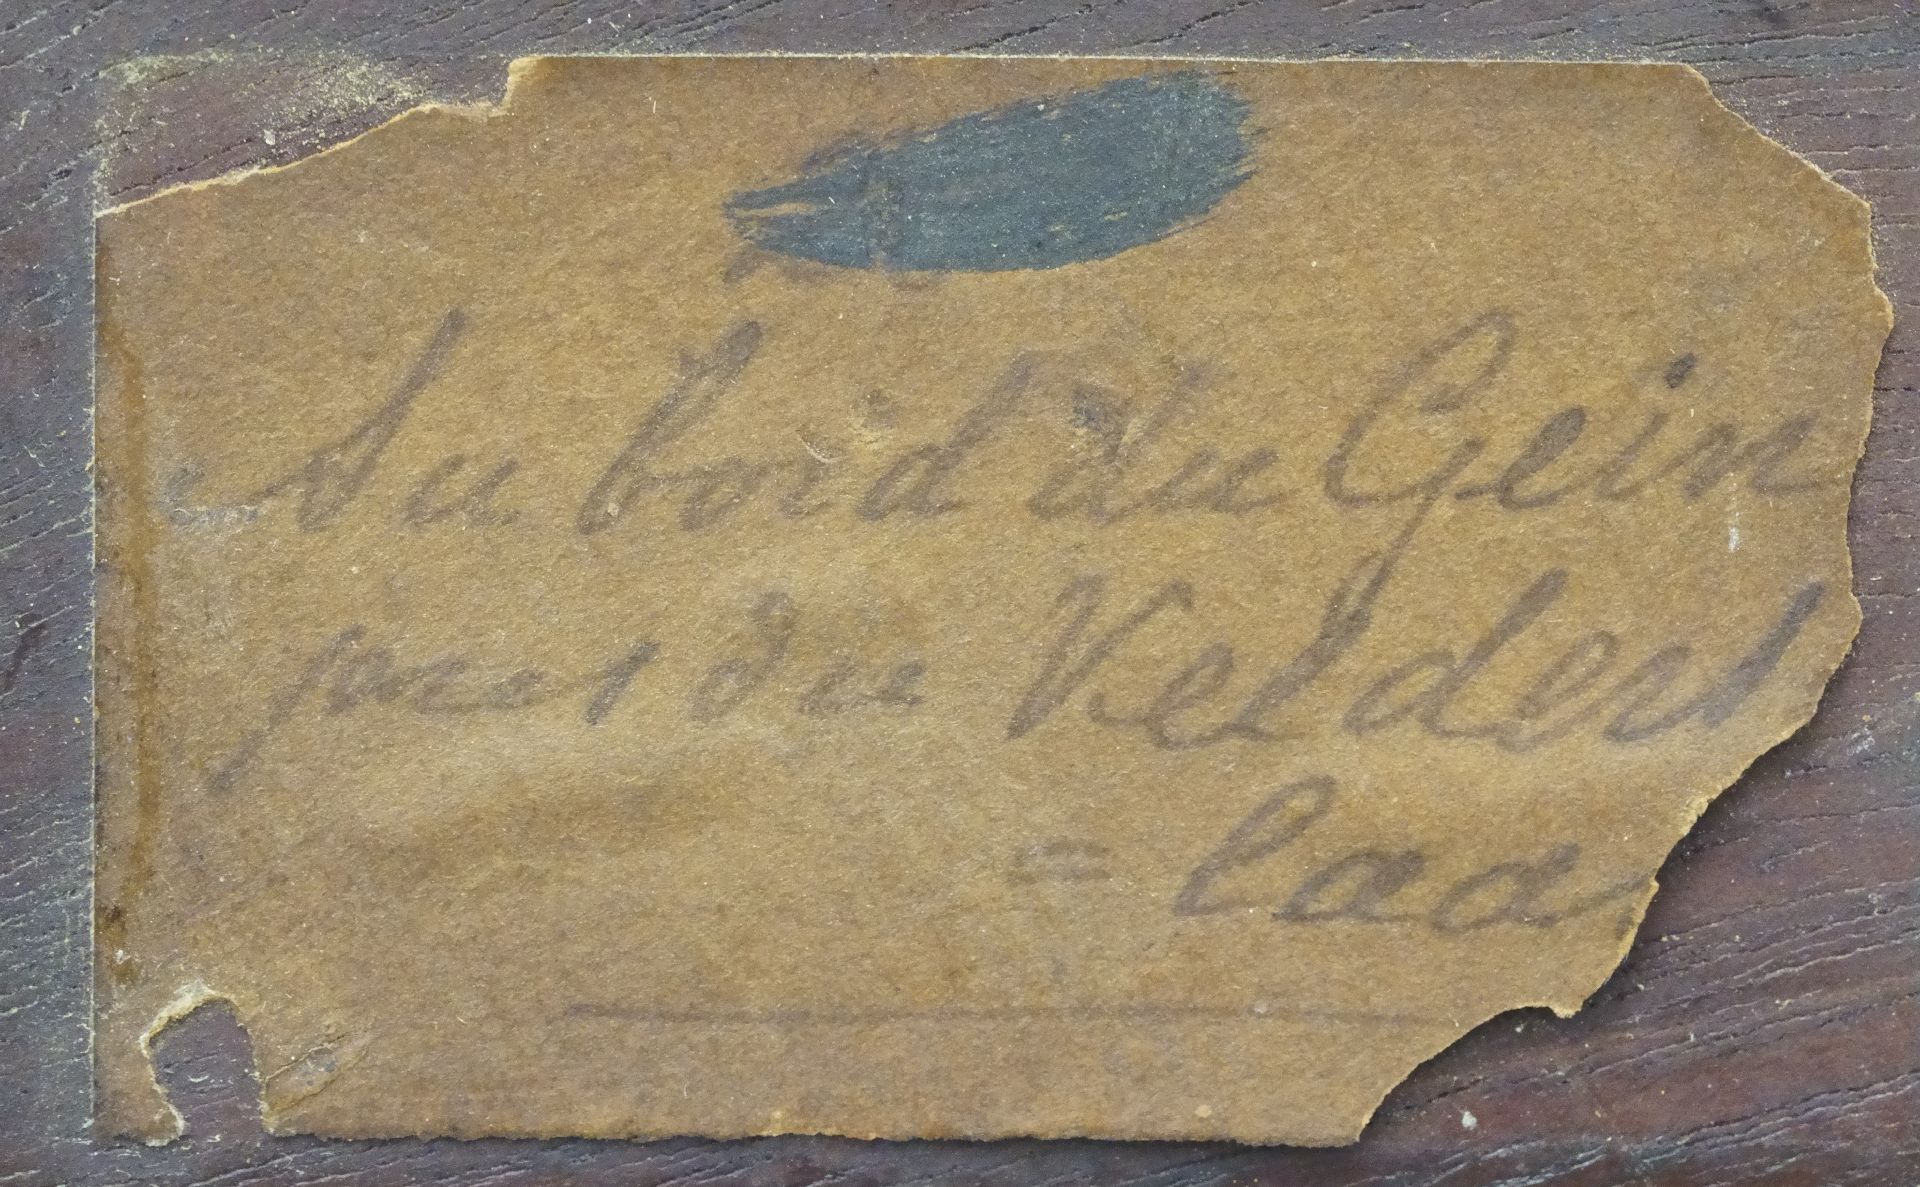 Au bord du Gein
près du Kelderl
= laa